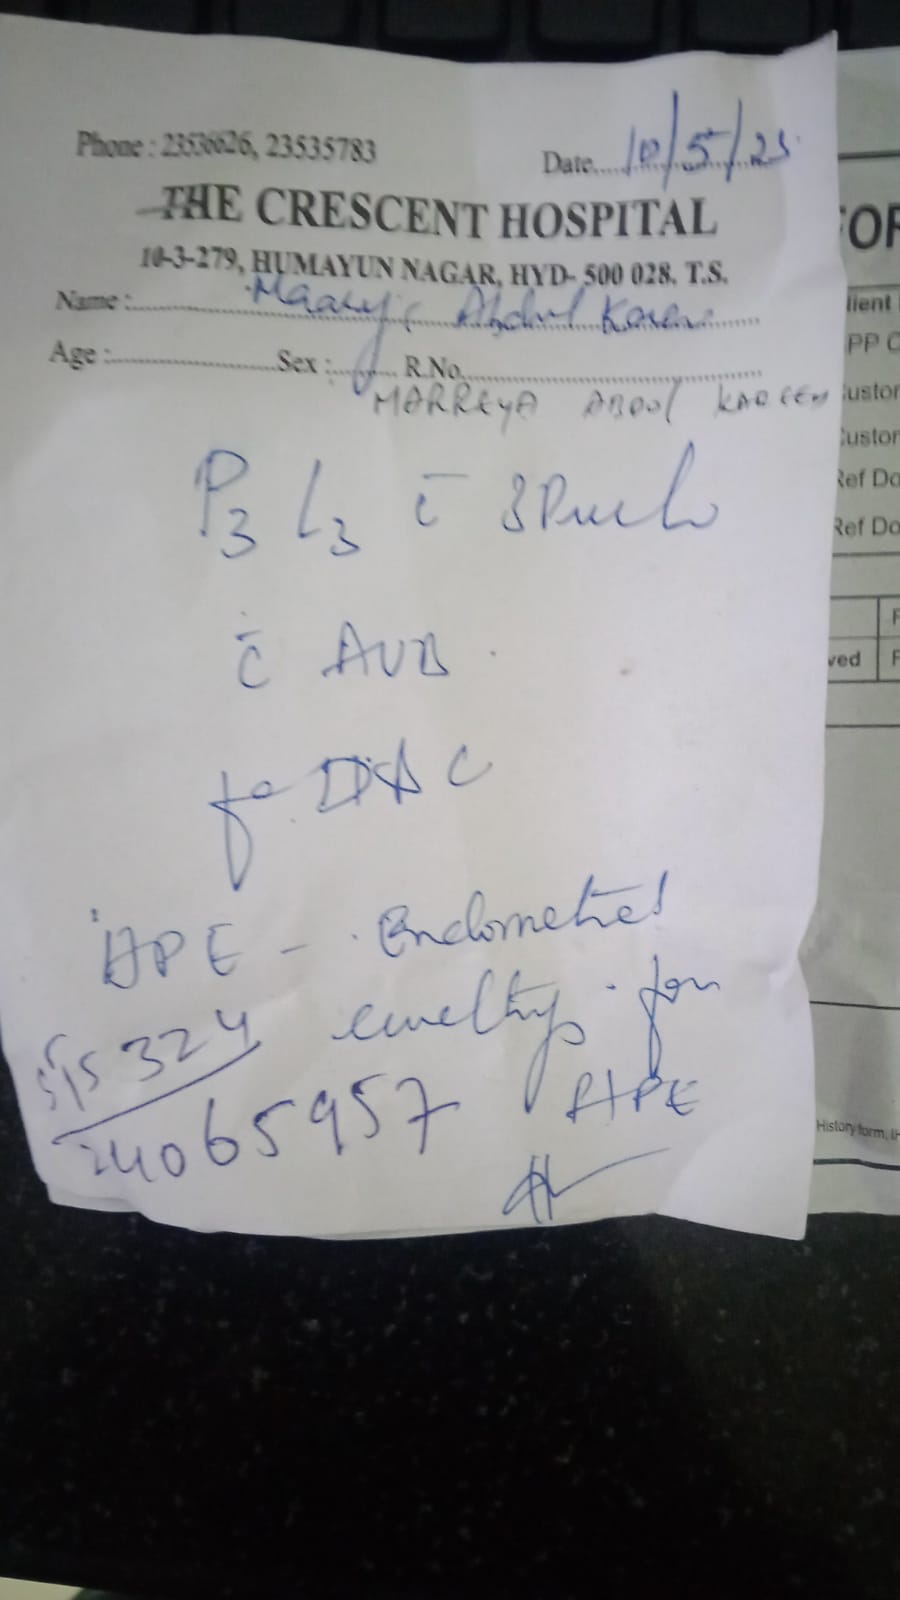 Phone : 23536626, 23535783
Date.....10/5/25
THE CRESCENT HOSPITAL
10-3-279, HUMAYUN NAGAR, HYD- 500 028. T.S.
Name : Abdul
Age : Sex : R.No.
MARREYA ABDUL KAREEM
P3 L3 c̄
c̄ AUB.
for D&C
HPE - Endometrial
for
HPE
515324
24065957
FOR
lient
PP C
ustom
ustom
Ref Do
Ref Do
ved
History form,